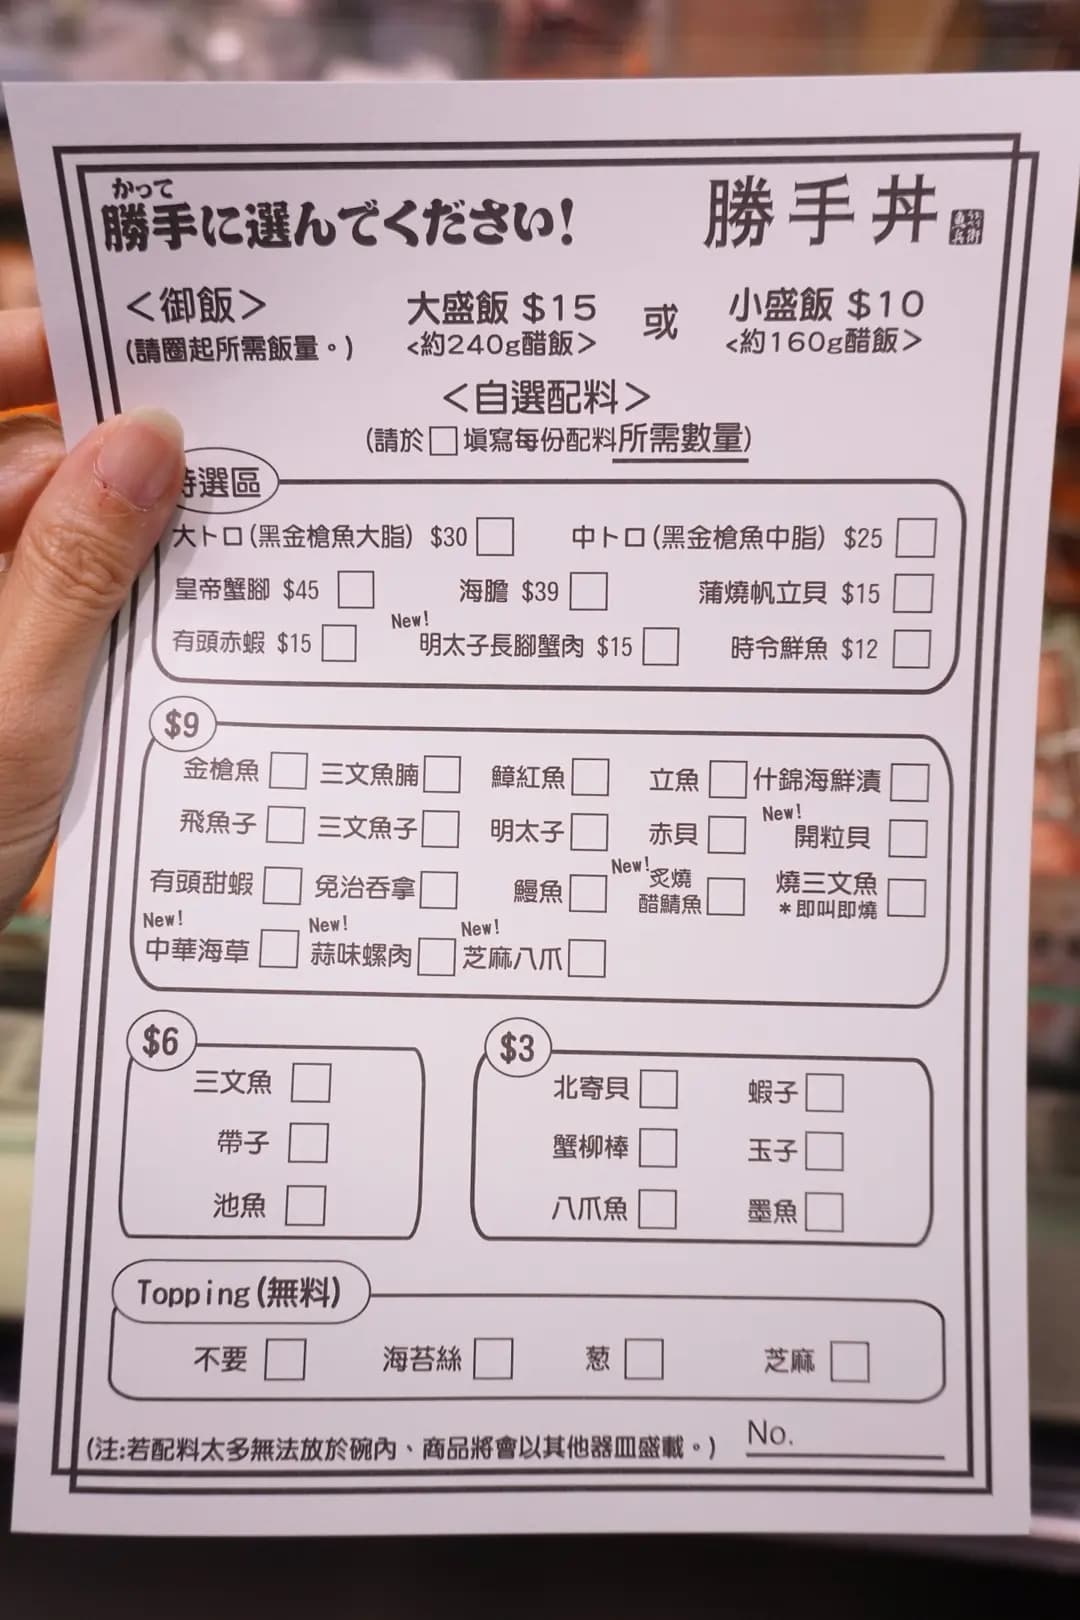 かって
勝手に選んでください!
勝手丼
<御飯> 大盛飯 $15 或 小盛飯 $10
(請圈起所需飯量。) <約240g醋飯> <約160g醋飯>
<自選配料>
(請於□填寫每份配料所需數量)
特選區
大トロ(黑金槍魚大脂) $30 □ 中トロ(黑金槍魚中脂) $25 □
皇帝蟹腳 $45 □ 海膽 $39 □ 蒲燒帆立貝 $15 □
New!
有頭赤蝦 $15 □ 明太子長腳蟹肉 $15 □ 時令鮮魚 $12 □
$9
金槍魚 □ 三文魚腩 □ 鱆紅魚 □ 立魚 □ 什錦海鮮漬 □
New!
飛魚子 □ 三文魚子 □ 明太子 □ 赤貝 □ 開粒貝 □
New!
有頭甜蝦 □ 免治吞拿 □ 鰻魚 □ 炙燒醋鯖魚 □ 燒三文魚 □
*即叫即燒
New! New! New!
中華海草 □ 蒜味螺肉 □ 芝麻八爪 □
$6
三文魚 □
帶子 □
池魚 □
$3
北寄貝 □ 蝦子 □
蟹柳棒 □ 玉子 □
八爪魚 □ 墨魚 □
Topping(無料)
不要 □ 海苔絲 □ 葱 □ 芝麻 □
(注:若配料太多無法放於碗內、商品將會以其他器皿盛載。)
No.